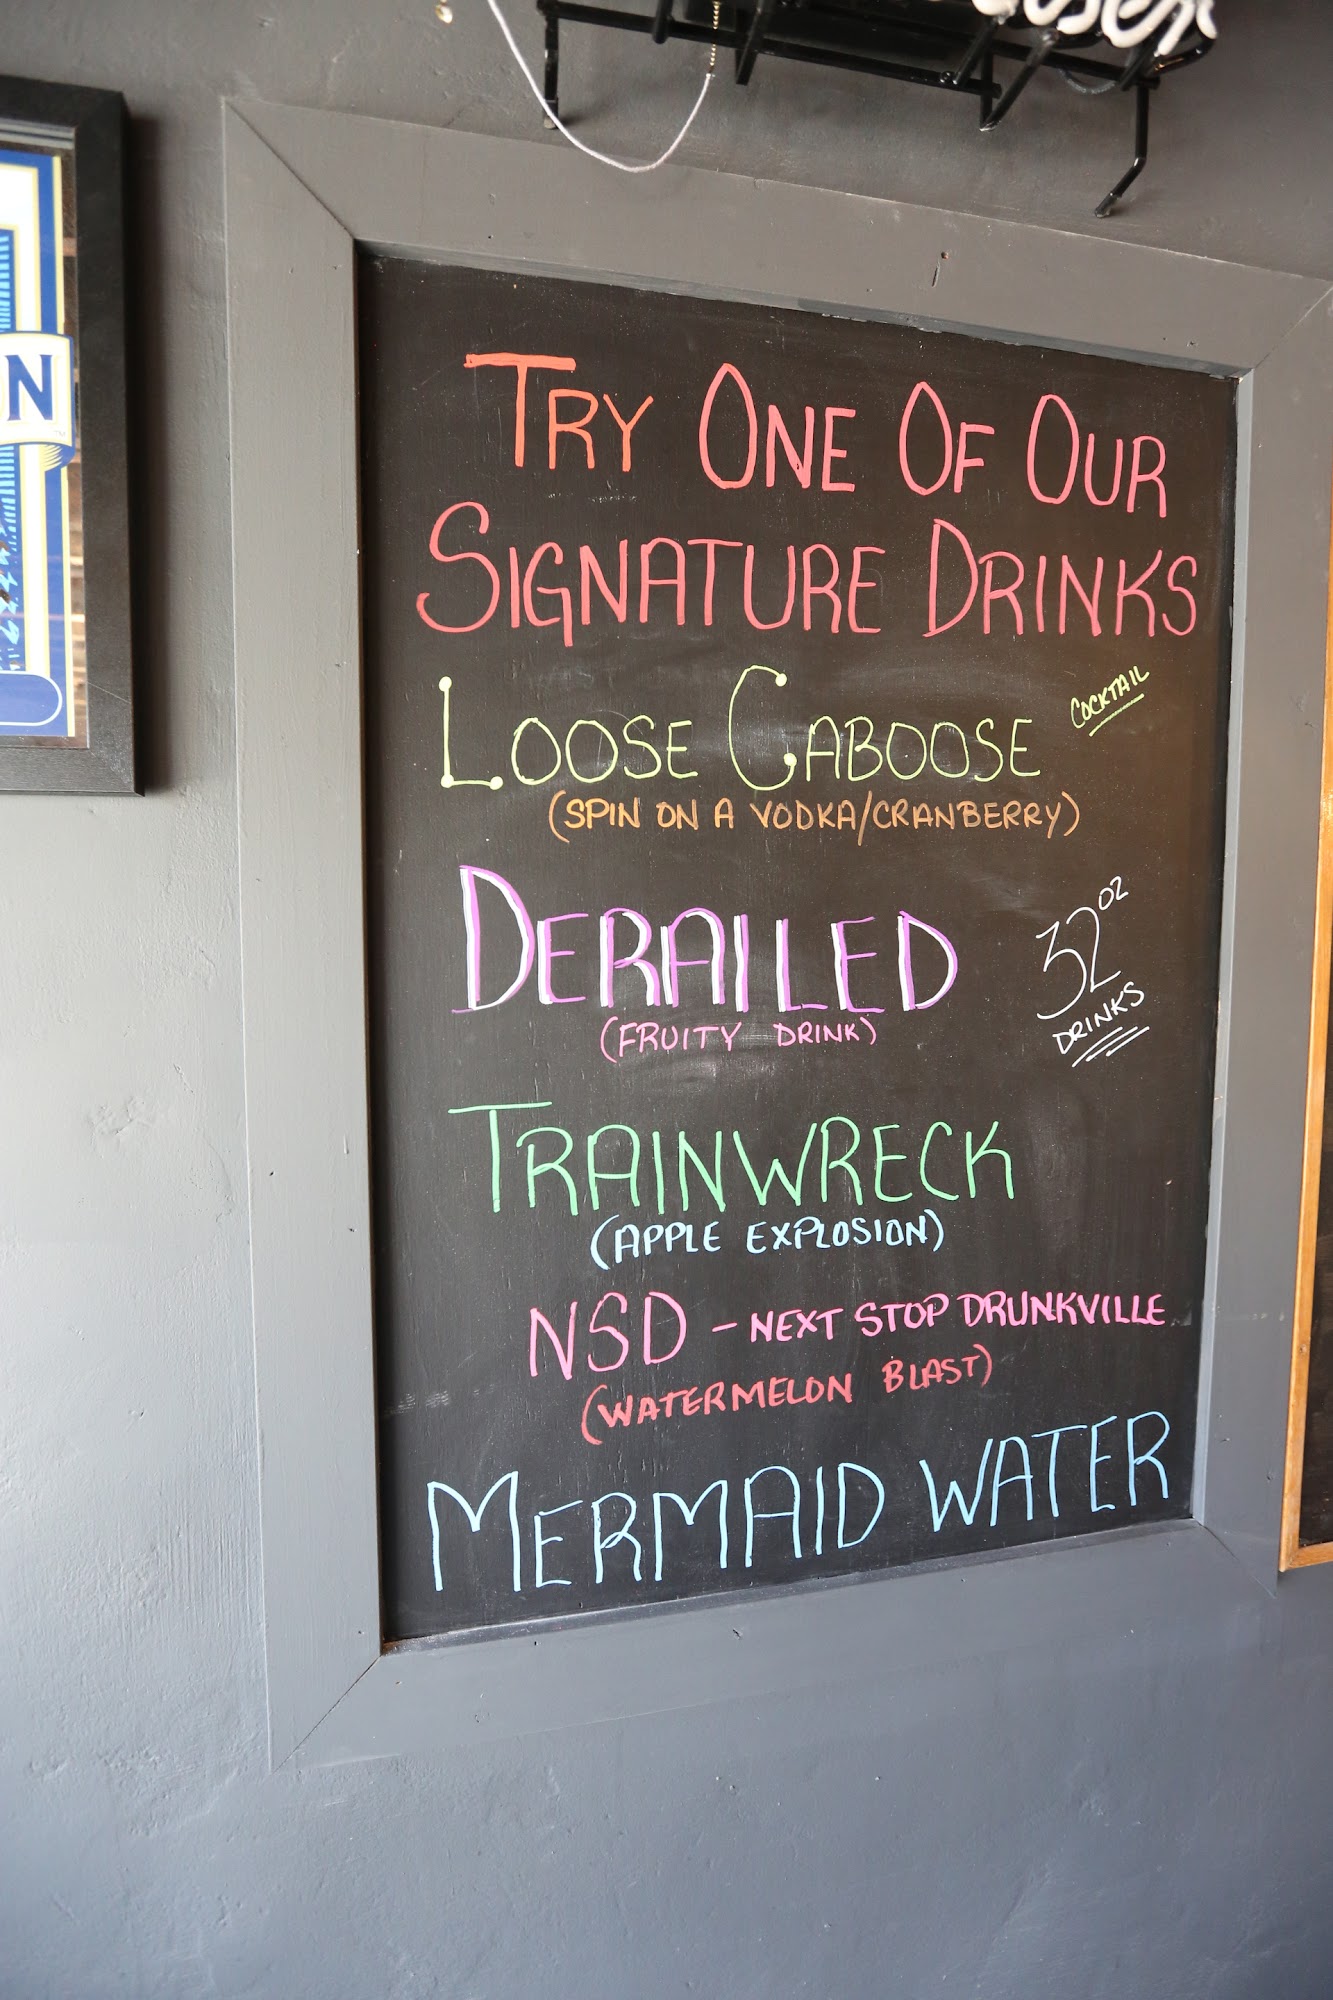 TRY ONE OF OUR
SIGNATURE DRINKS
LOOSE CABOOSE COCKTAIL
(SPIN ON A VODKA/CRANBERRY)
DERAILED 32 OZ
DRINKS
(FRUITY DRINK)
TRAINWRECK
(APPLE EXPLOSION)
NSD - NEXT STOP DRUNKVILLE
(WATERMELON BLAST)
MERMAID WATER